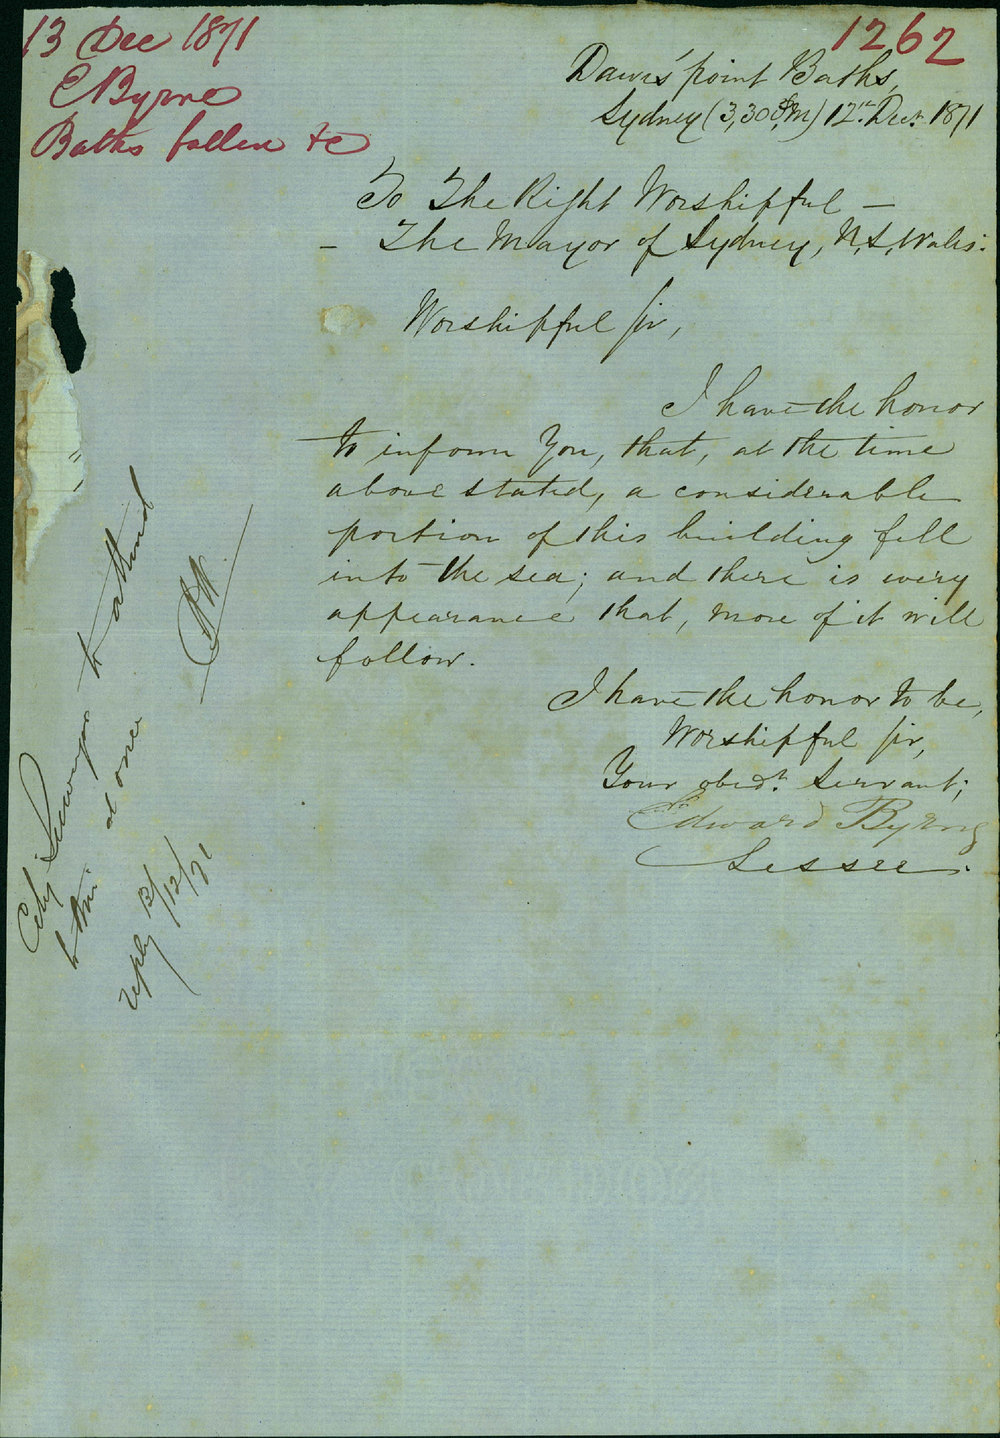 13 Dec 1871
E Byrne
Baths fallen &c
1262
Dawes' point Baths,
Sydney (3,30 P.M) 12th. Decr. 1871
To The Right Worshipful —
— The Mayor of Sydney, N.S. Wales.
Worshipful Sir,
I have the honor
to inform You, that, at the time
above stated, a considerable
portion of this building fell
into the sea; and there is every
appearance that, more of it will
follow.
I have the honor to be,
Worshipful Sir,
Your obedt. Servant;
Edward Byrne
Lessee.
City Surveyor to attend
to this at once
reply 13/12/71